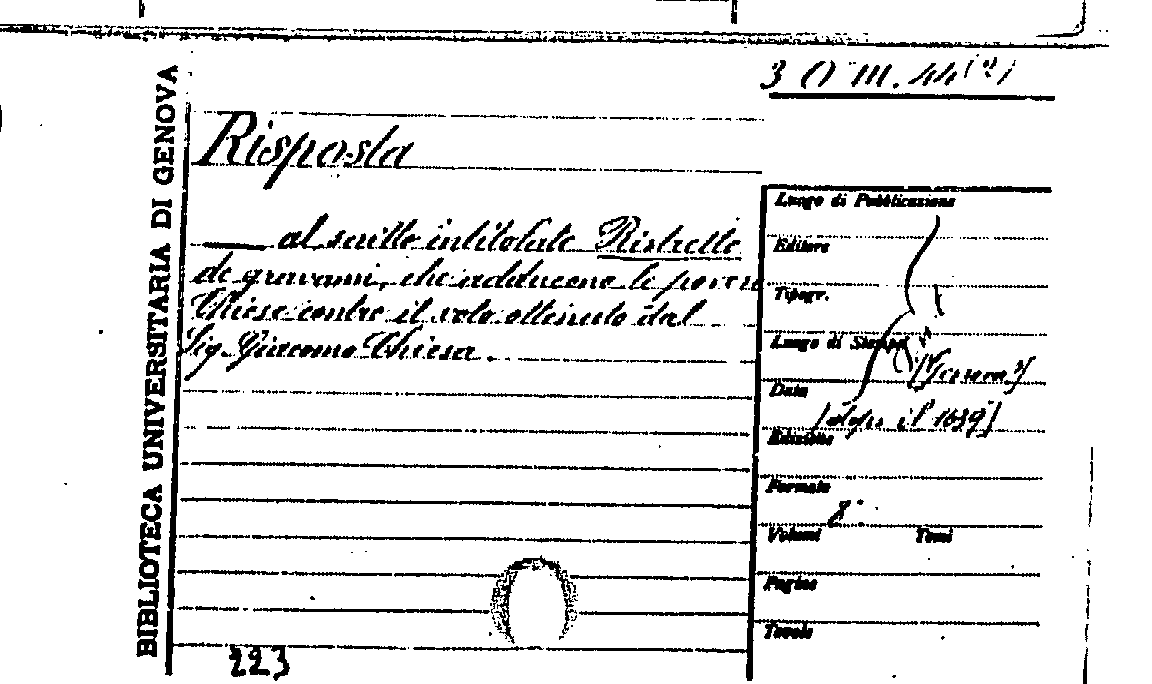 3 O III. 44 (2)
BIBLIOTECA UNIVERSITARIA DI GENOVA
Risposta
al scritto intitolato Ristretto
de gravami, che adducono le povere
Chiese contro il voto ottenuto dal
Sig. Giacomo Chiesa.
Luogo di Pubblicazione
Editore
Tipogr.
Luogo di Stampa
[Genova?]
Data
[dopo il 1639]
Edizione
Formato
8°.
Volumi Tomi
Pagine
Tavole
223